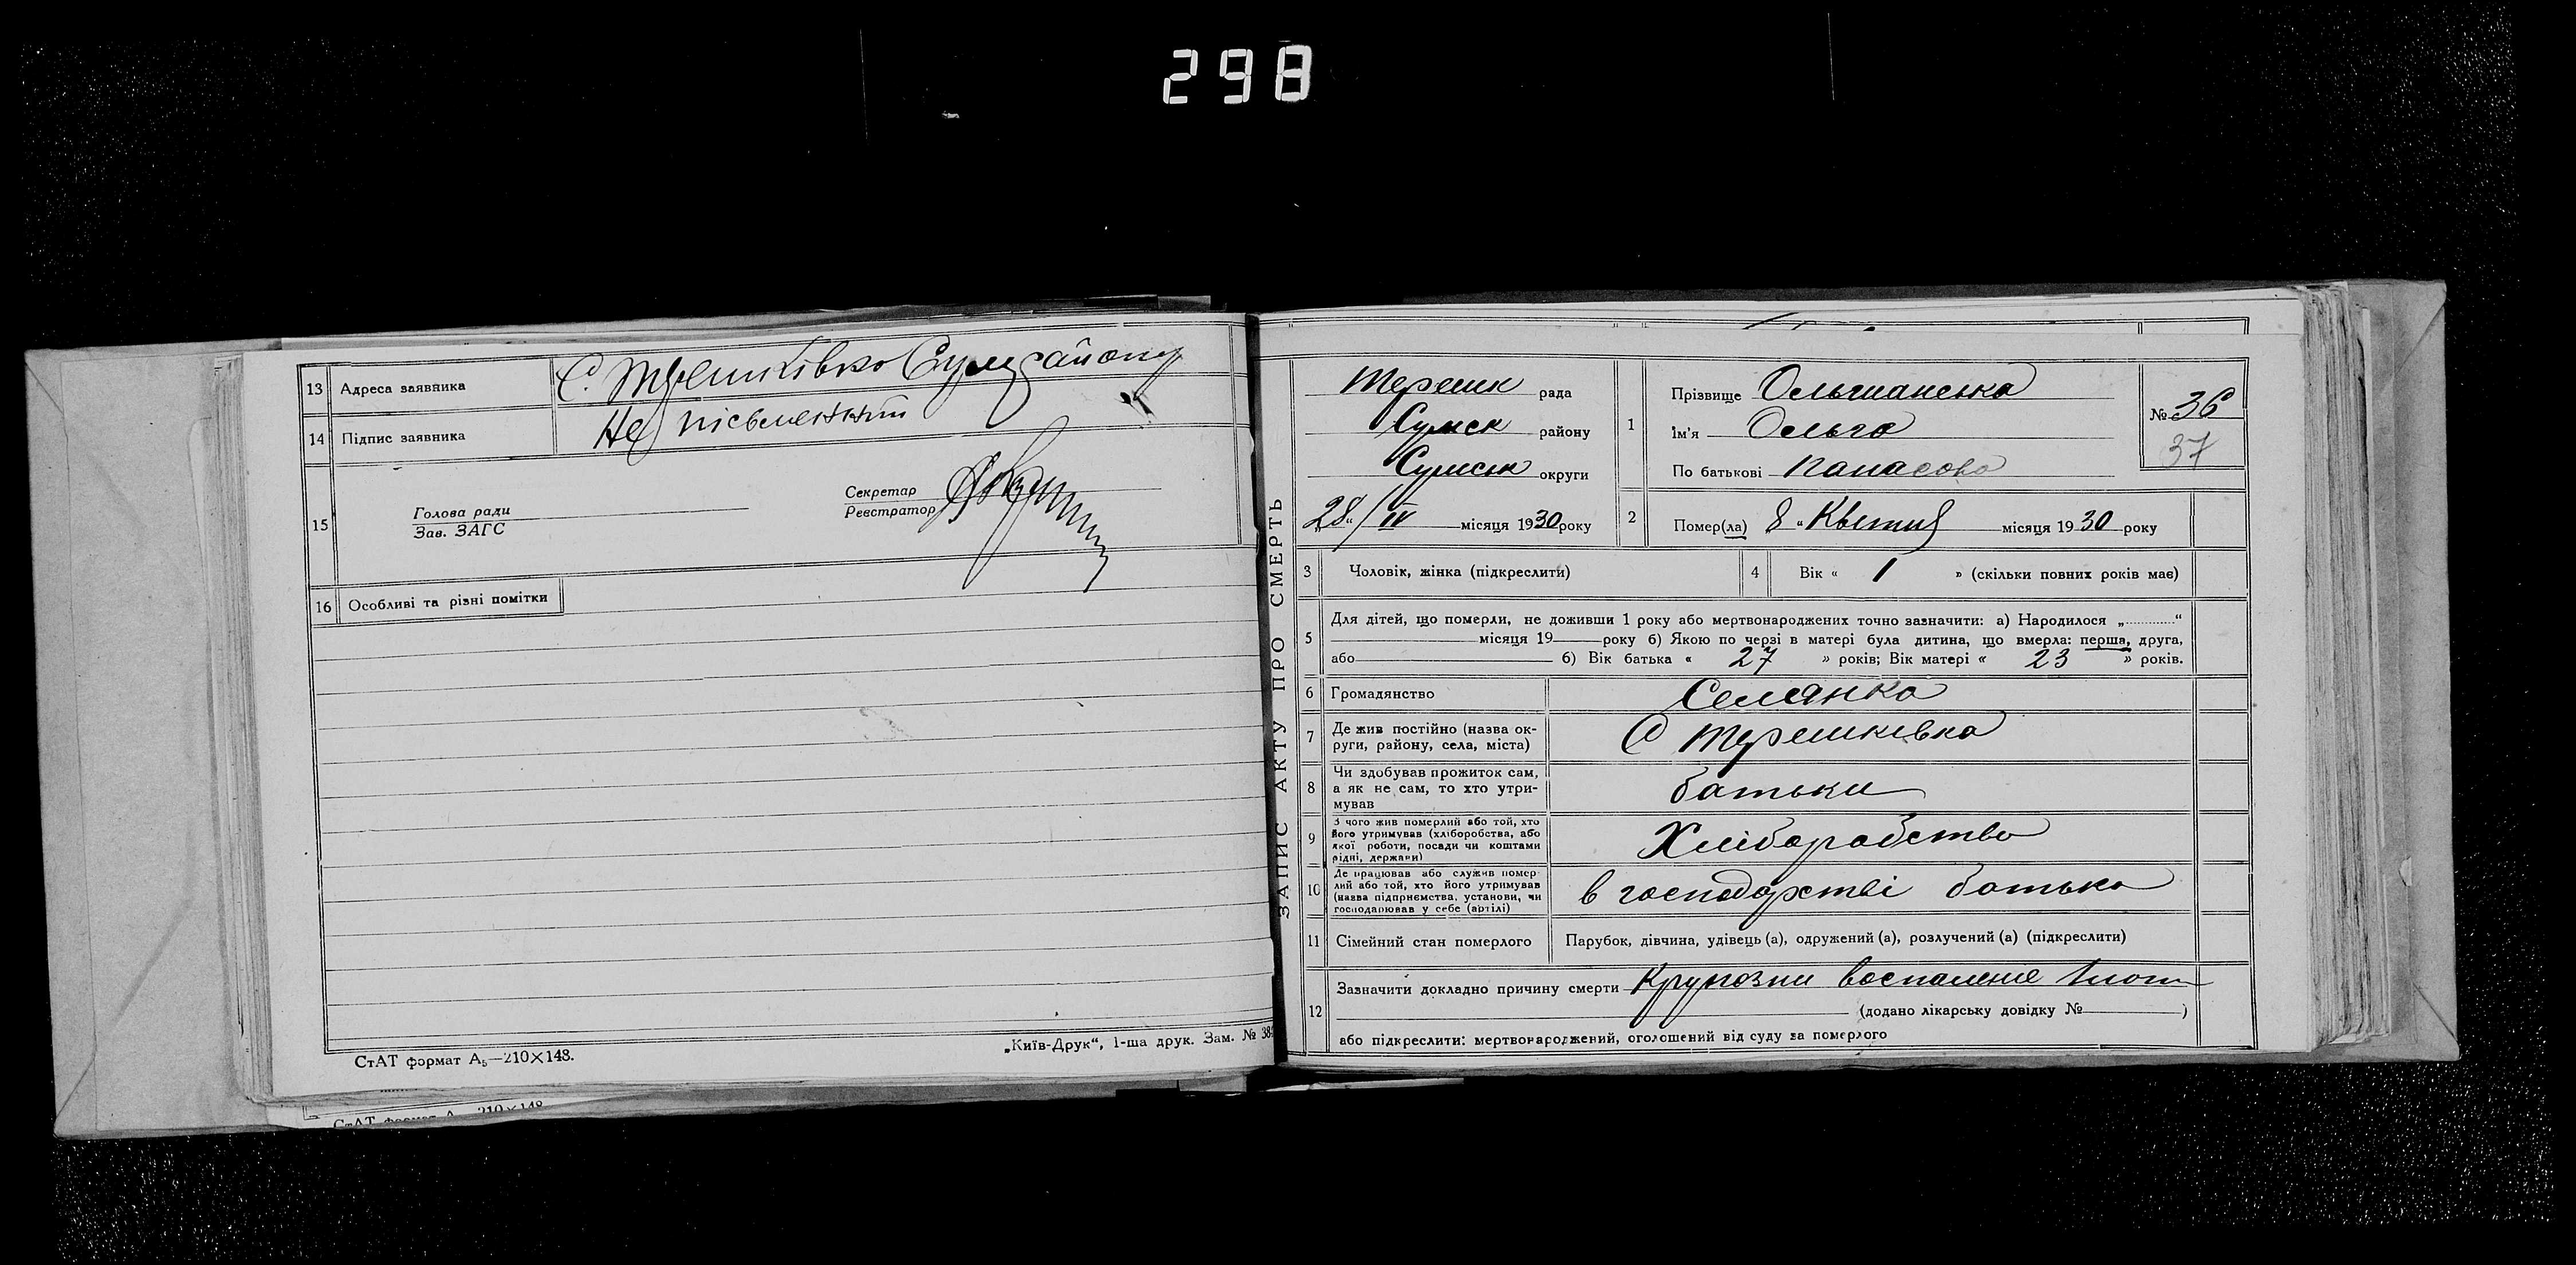 298
13 Адреса заявника С. Терешківка Сум району
14 Підпис заявника Не пісьменний
15 Голова ради
Зав. ЗАГС
Секретар
Реєстратор
16 Особливі та різні помітки
СтАТ формат А₅—210×148.
„Київ-Друк“, 1-ша друк. Зам. № 38
СтАТ формат А 210×148
ЗАПИС АКТУ ПРО СМЕРТЬ
Терешк рада
Сумск району
Сумськ округи
„28“/IV місяця 1930 року
1 Прізвище Ольшанська
Ім'я Ольга
По батькові Панасова
№ 36
37
2 Помер(ла) „8“ Квітня місяця 1930 року
3 Чоловік, жінка (підкреслити)
4 Вік « 1 » (скільки повних років має)
5 Для дітей, що померли, не доживши 1 року або мертвонароджених точно зазначити: а) Народилося „ “
місяця 19 року б) Якою по черзі в матері була дитина, що вмерла: перша, друга,
або б) Вік батька « 27 » років; Вік матері « 23 » років.
6 Громадянство Селянка
7 Де жив постійно (назва ок-
руги, району, села, міста) С Терешківка
8 Чи здобував прожиток сам,
а як не сам, то хто утри-
мував батьки
9 З чого жив померлий або той, хто
його утримував (хліборобства, або
якої роботи, посади чи коштами
рідні, держави) Хліборобство
10 Де працював або служив помер-
лий або той, хто його утримував
(назва підприємства, установи, чи
господарював у себе (артілі) в господарстві батька
11 Сімейний стан померлого Парубок, дівчина, удівець (а), одружений (а), розлучений (а) (підкреслити)
12 Зазначити докладно причину смерти Крупозни воспаленіе
(додано лікарську довідку № )
або підкреслити: мертвонароджений, оголошений від суду за померлого